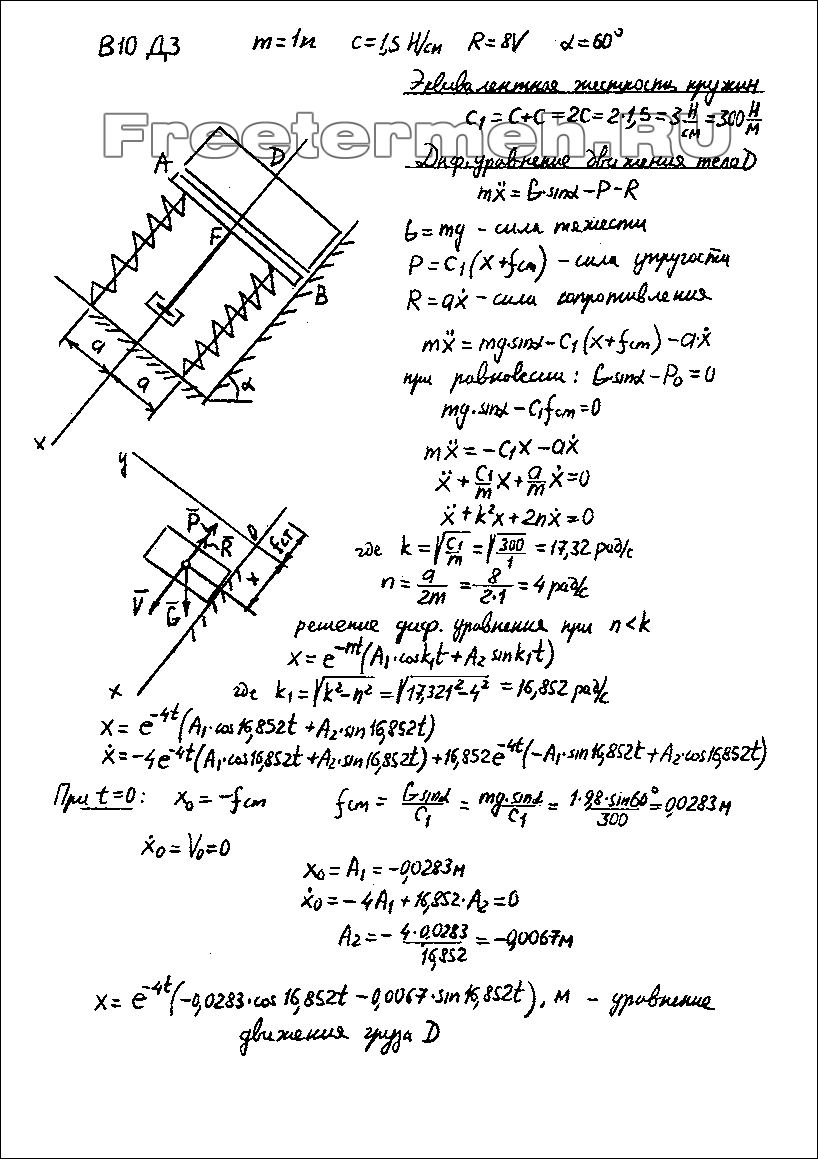 В10 Д3 m=1кг c=1,5 Н/см R=8V α=60°
Эквивалентная жесткость пружин
C₁=C+C=2C=2·1,5=3 Н/см=300 Н/м
Freetermen.RU
Диф. уравнение движения тела D
mẍ=G·sinα−P−R
G=mg - сила тяжести
P=C₁(x+fст) - сила упругости
R=aẋ - сила сопротивления
mẍ=mg·sinα−C₁(x+fст)−a·ẋ
при равновесии: G·sinα−P₀=0
mg·sinα−C₁fст=0
mẍ=−C₁x−aẋ
ẍ+C₁/m x+a/m ẋ=0
ẍ+k²x+2nẋ=0
где k=√(C₁/m)=√(300/1)=17,32 рад/с
n=a/2m=8/2·1=4 рад/с
A D F B a a α x
y P̄ R̄ O fст x V̄ Ḡ x
решение диф. уравнения при n<k
x=e⁻ⁿᵗ(A₁·cosk₁t+A₂sink₁t)
где k₁=√(k²−n²)=√(17,321²−4²)=16,852 рад/с
x=e⁻⁴ᵗ(A₁·cos16,852t+A₂·sin16,852t)
ẋ=−4e⁻⁴ᵗ(A₁·cos16,852t+A₂·sin16,852t)+16,852e⁻⁴ᵗ(−A₁·sin16,852t+A₂·cos16,852t)
При t=0: x₀=−fст fст=Gsinα/C₁=mg·sinα/C₁=1·9,8·sin60°/300=0,0283м
ẋ₀=V₀=0
x₀=A₁=−0,0283м
ẋ₀=−4A₁+16,852·A₂=0
A₂=−4·0,0283/16,852=−0,0067м
x=e⁻⁴ᵗ(−0,0283·cos16,852t−0,0067·sin16,852t), м - уравнение
движения груза D